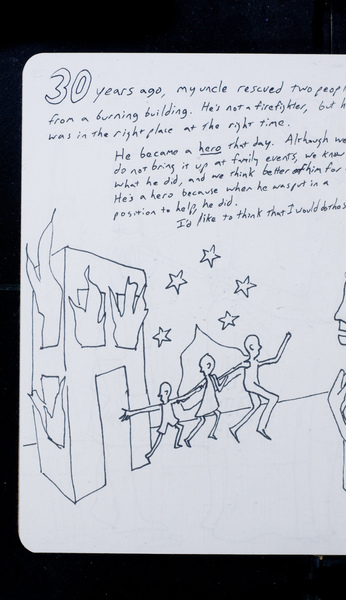 30 years ago, my uncle rescued two peopl
from a burning building. He's not a firefighter, but h
was in the right place at the right time.
He became a hero that day. Although we
do not bring it up at family events, we know
what he did, and we think better of him for
He's a hero because when he was put in a
position to help, he did.
I'd like to think that I would do